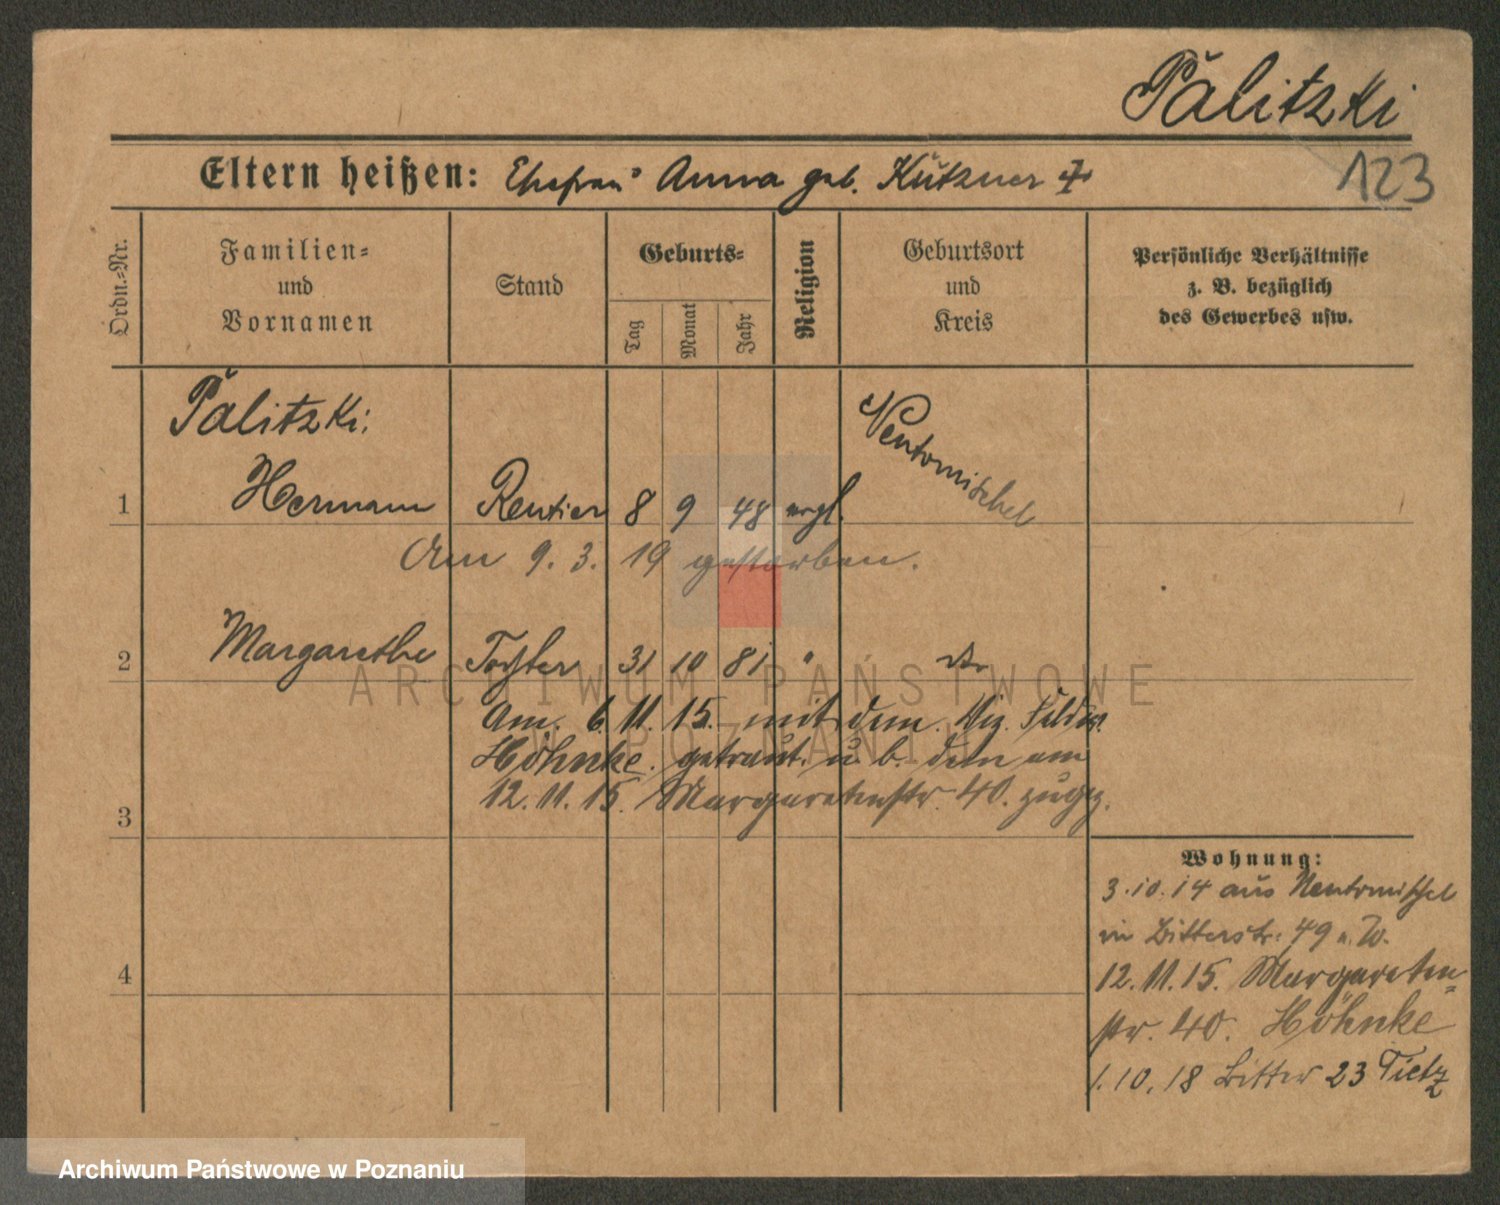 Palitzki
123
Eltern heißen: Ehefrau Anna geb. Kützner †
Ordn.-Nr.
Familien-
und
Vornamen
Stand
Geburts-
Tag
Monat
Jahr
Religion
Geburtsort
und
Kreis
Persönliche Verhältnisse
z. B. bezüglich
des Gewerbes usw.
Palitzki:
1 Hermann Rentier 8 9 48 evgl. Neutomischel
Am 9. 3. 19 gestorben.
2 Margarethe Tochter 31 10 81 "
ARCHIWUM PAŃSTWOWE
W POZNANIU
Am 6. 11. 15. mit dem
Höhnke getraut. u. b. dem am
3 12. 11. 15. Margaretenstr. 40. zugez.
4
Wohnung:
3.10.14 aus Neutomischel
in Bitterstr. 49
12. 11. 15. Margareten-
str. 40. Höhnke
1. 10. 18 Bitter 23 Tietz
Archiwum Państwowe w Poznaniu